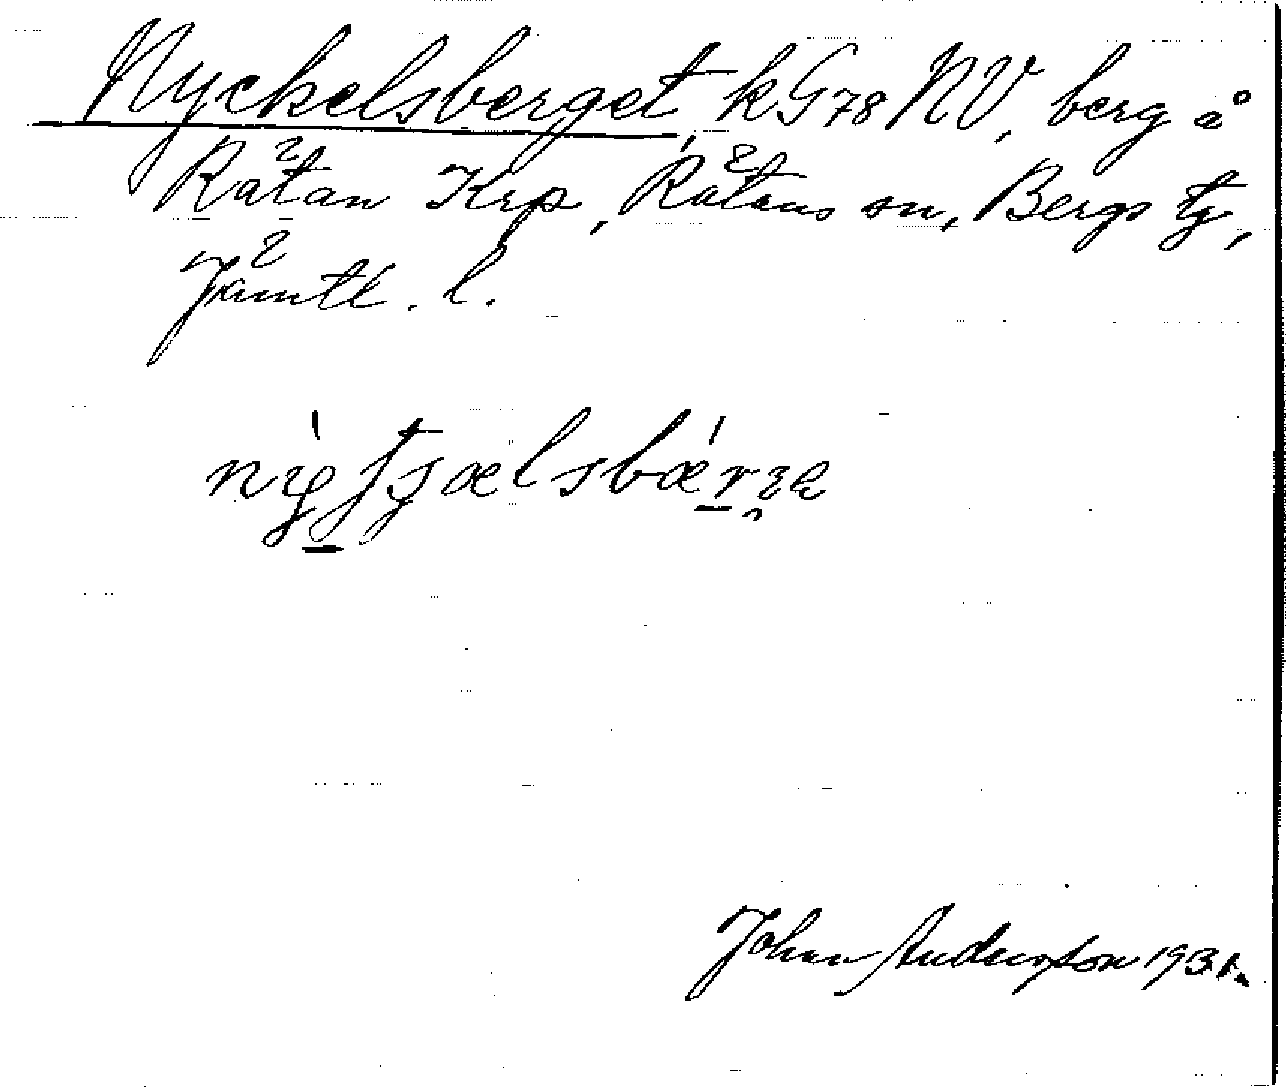 Nyckelsberget, k G 78 NV, berg å
Rätan Krp, Rätans sn, Bergs tg,
Jämtl. l.
Johan Andersson 1931.